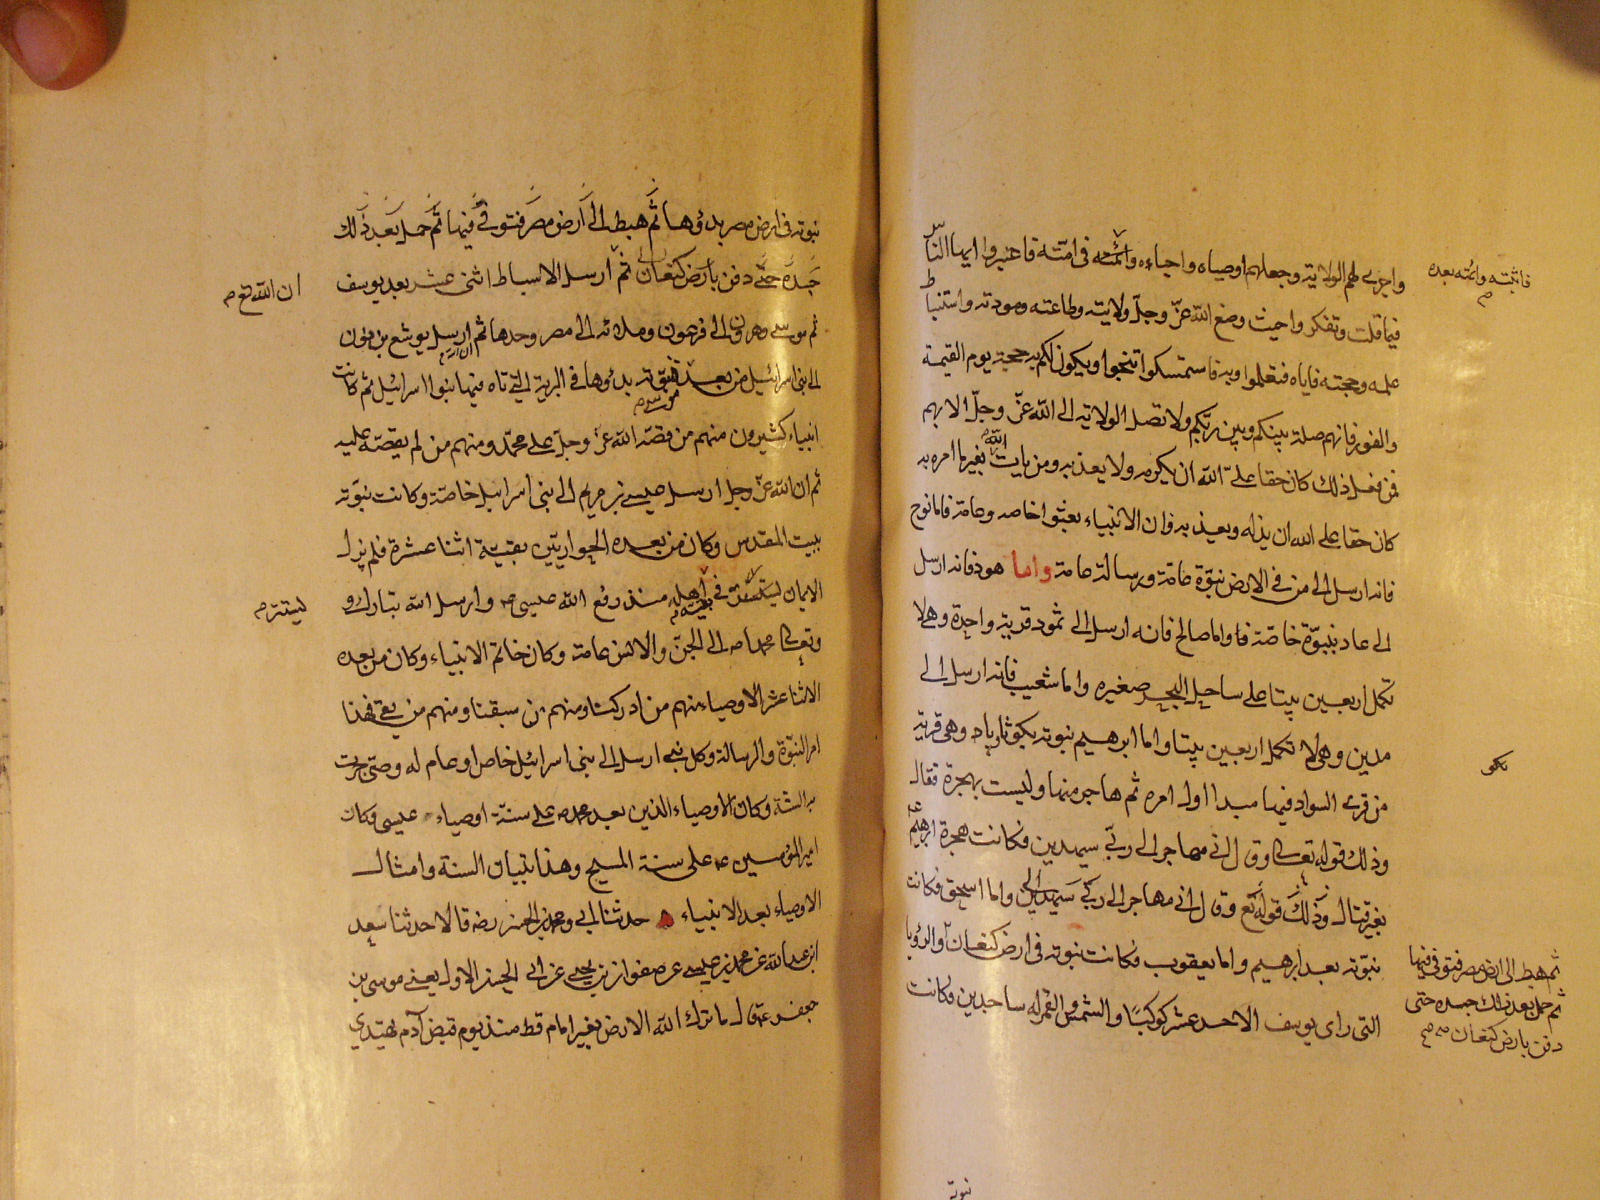 واجرى لهم الولاية وجعلهم اوصياء واحباءه وائمته فى امته فاعتبروا ايها الناس
فاثبته وائمته بعده
فيما قلت وتفكروا حيث وضع الله عزّ وجلّ ولايته وطاعته ومودته واستنباط
علمه وحجته فاياه فتعلموا وبه فاستمسكوا تنجوا ويكون لكم به حجة يوم القيمة
والفوز فانهم صلة بينكم وبين ربّكم ولا تصل الولاية الى الله عزّ وجلّ الا بهم
فمن فعل ذلك كان حقا على الله ان يكرمه ولا يعذبه ومن يات الله بغير ما امره به
كان حقا على الله ان يذله ويعذبه وان الانبياء بعثوا خاصه وعامة فاما نوح
فانه ارسل الى من فى الارض نبوّة عامّة ورسالة عامة واما هود فانه ارسل
الى عاد بنبوّة خاصّة واما صالح فانه ارسل الى ثمود قرية واحدة وهى لا
تكمل اربعين بيتا على ساحل البحر صغيره واما شعيب فانه ارسل الى
مدين وهى لا تكمل اربعين بيتا واما ابرهيم نبوته بكوثاريا وهى قرية
من قرى السواد فيها مبدا اول امره ثم هاجر منها وليست بهجرة فقال
وذلك قوله تعالى وقال انى مهاجر الى ربّى سيهدين فكانت هجرة ابرهيم ع
بغير قتال وذلك قوله تع وقال انى مهاجر الى ربّى سيهدين واما اسحق فكانت
نبوّته بعد ابرهيم واما يعقوب فكانت نبوته فى ارض كنعان والرؤيا
ثم هبط الى ارض مصر فتوفى فيها
ثم حمل بعد ذلك جسده حتى
دفن بارض كنعان
التى راى يوسف الاحد عشر كوكبًا والشمس والقمر له ساجدين فكانت
نبوته
نبوته فى ارض مصر بدؤها ثم هبط الى ارض مصر فتوفى فيها ثم حمل بعد ذلك
جسده حتّى دفن بارض كنعان ثمّ ارسل الاسباط اثنى عشر بعد يوسف
ان الله تع
ثم موسى وهرون الى فرعون وملائه الى مصر وحدها ثم ارسل يوشع بن نون
الى بنى اسرائيل من بعد موسى نبوّته بدؤها فى البرية التى تاه فيها بنوا اسرائيل ثم كانت
انبياء كثيرون منهم من قصّه الله عزّ وجلّ على محمّد ومنهم من لم يقصّه عليه
ثم ان الله عزّ وجل ارسل عيسى بن مريم الى بنى اسرائيل خاصّة وكانت نبوّته
ببيت المقدس وكان من بعده الحواريّين بقيّة اثنا عشرة فلم يزل
الايمان ليستتر فى بقية اهله منذ رفع الله عيسى وارسل الله تبارك و
ليستتر
وتعالى محمدا ص الى الجنّ والانس عامة وكان خاتم الانبياء وكان من بعده
الاثنا عشر الاوصياء منهم من ادركنا ومنهم من سبقنا ومنهم من بقى فهذا
امر النبوّة والرسالة وكل نبى ارسل الى بنى اسرائيل خاص او عام له وصىّ جرت
به السنة وكان الاوصياء الذين بعد محمد ص على سنّة اوصياء عيسى وكان
امير المؤمنين ع على سنة المسيح وهذا تبيان السنة وامثال
الاوصياء بعد الانبياء حدثنا ابى ومحمد بن الحسن رضه قالا حدثنا سعد
ابن عبد الله عن محمد بن عيسى عن صفوان بن يحيى عن ابى الحسن الاول يعنى موسى بن
جعفر ع قال ما ترك الله الارض بغير امام قط منذ يوم قبض آدم يهتدى